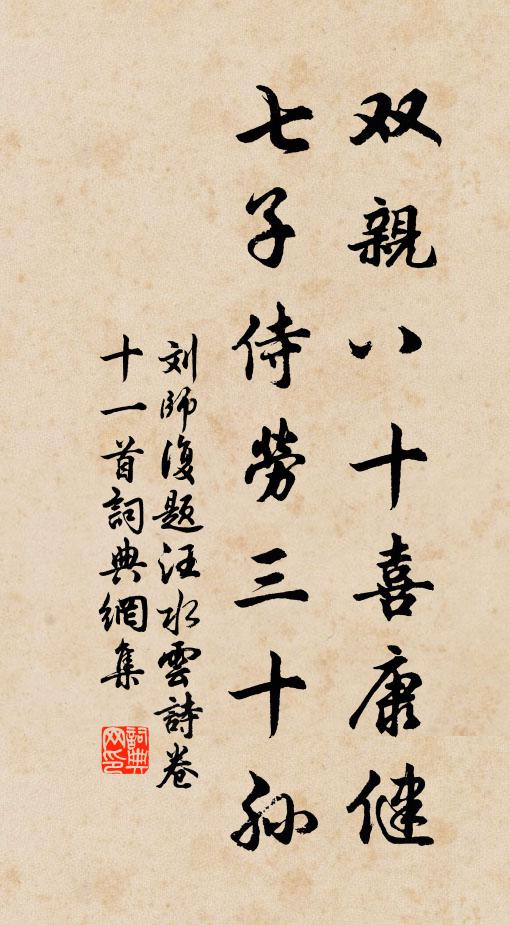 双親八十喜康健
七子侍勞三十孙
刘師復题汪水雲詩卷
十一首詞典網集
詞典网印